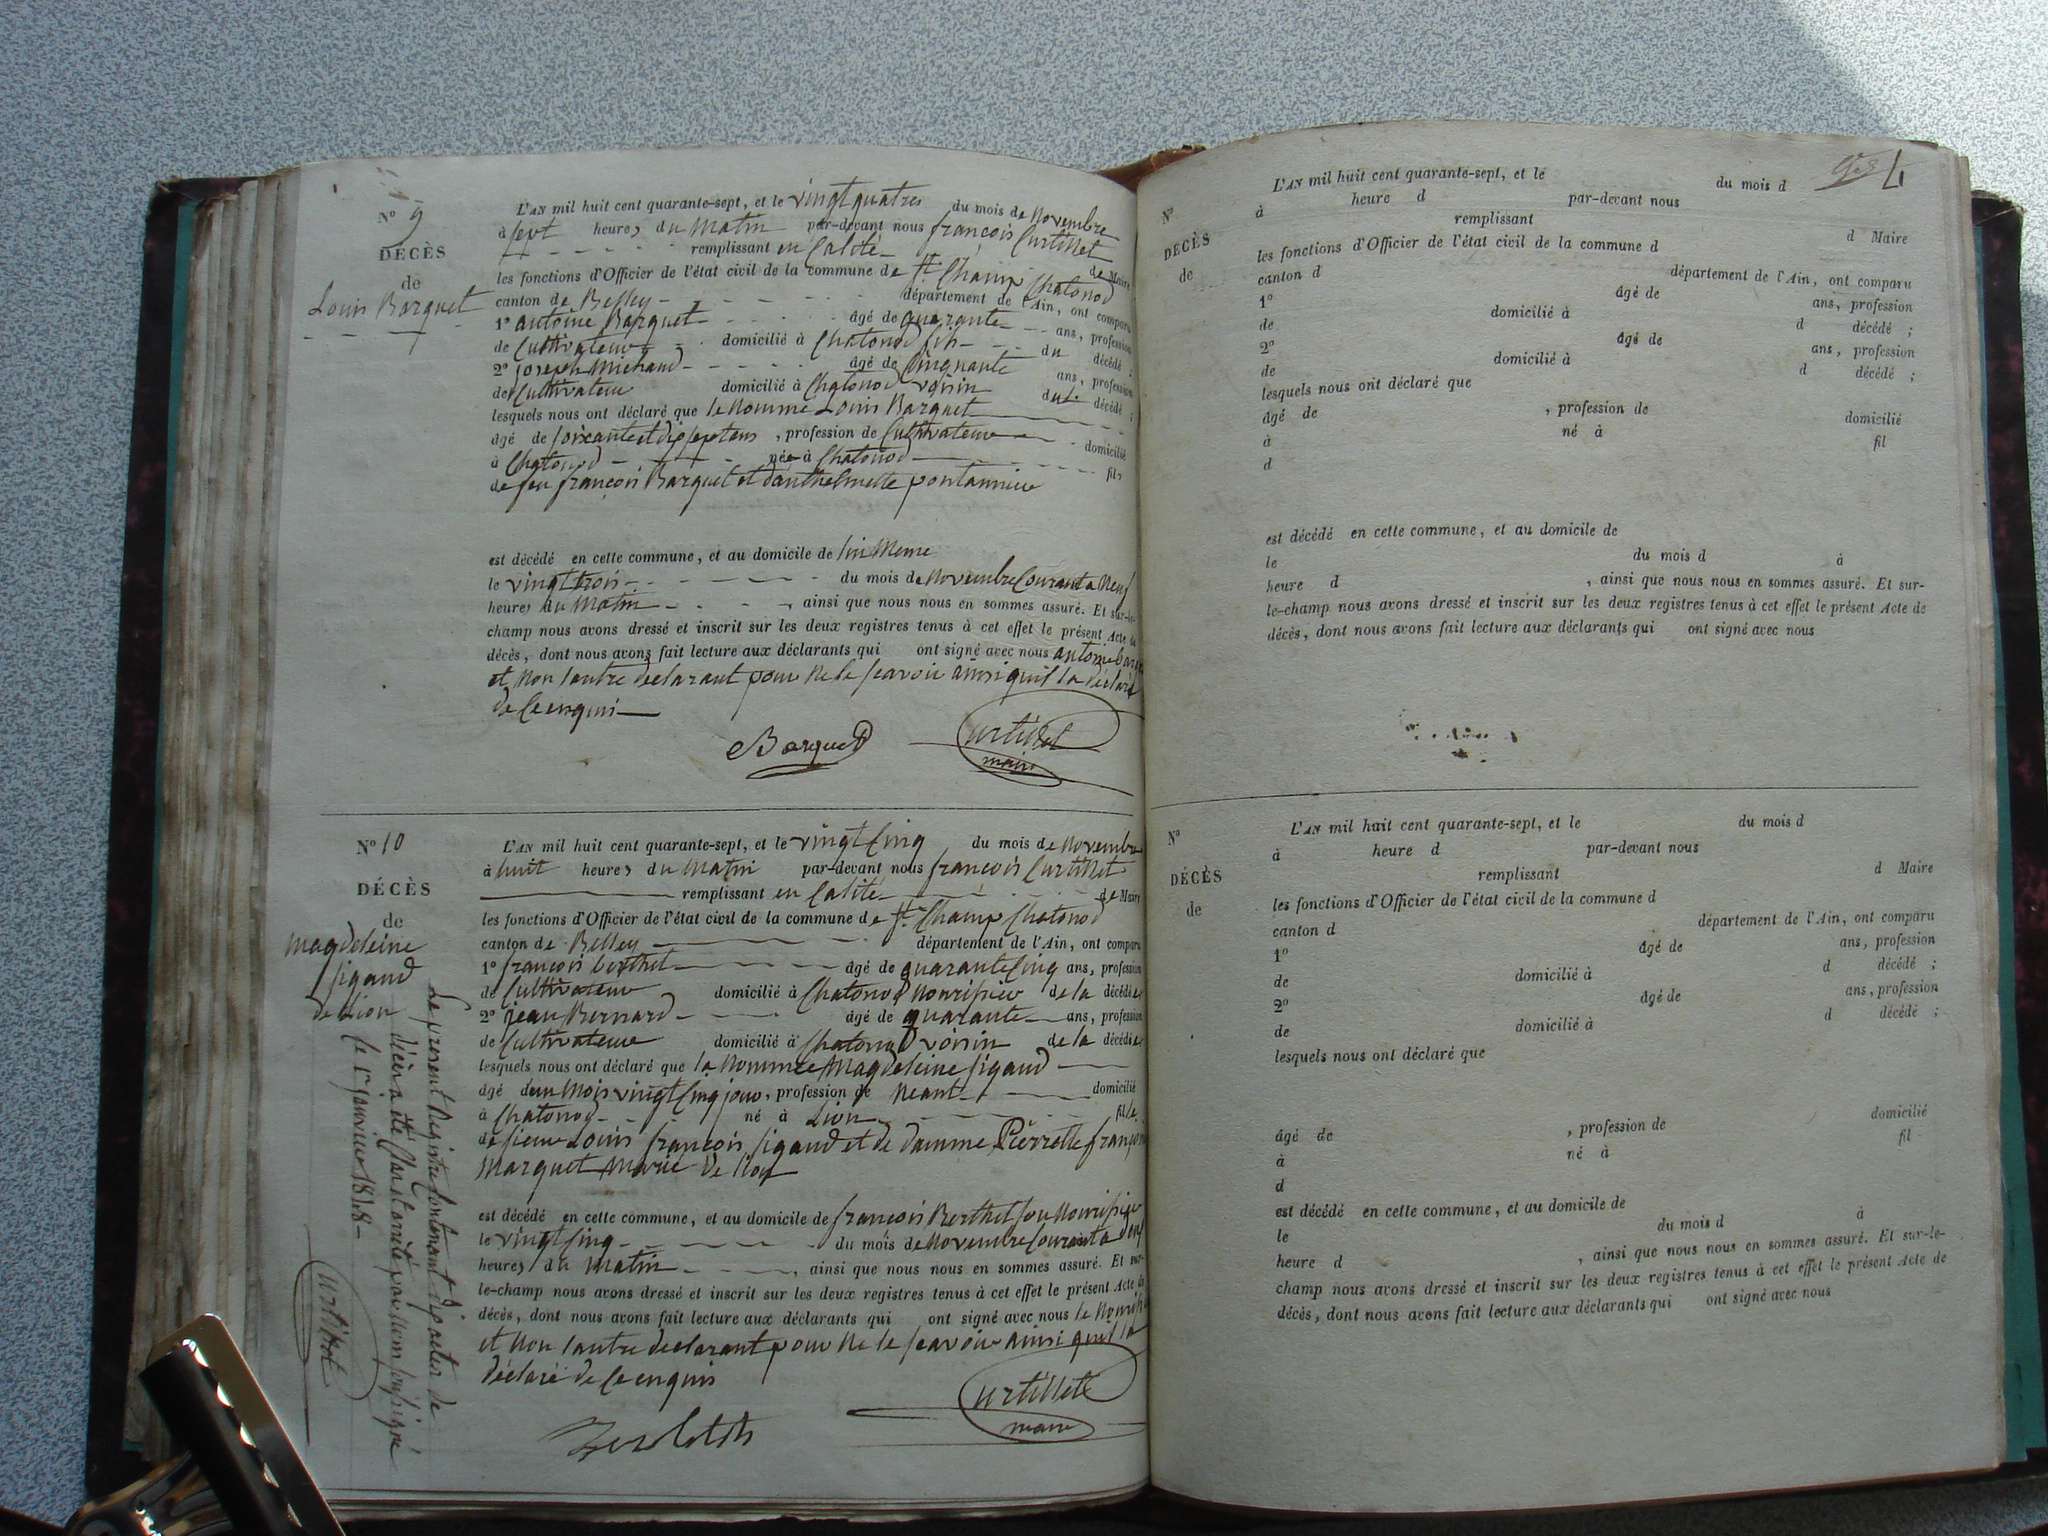 N° 9
DÉCÈS
de
Louis Barquet
L'AN mil huit cent quarante-sept, et le vingt quatres du mois de Novembre
à sept heures du Matin par-devant nous françois Curtillet
remplissant en Calité de Maire
les fonctions d'Officier de l'état civil de la commune de St Champ Chatonod
canton de Belley département de l'Ain, ont comparu
1° antoine Barquet âgé de quarante ans, profession
de Cultivateur domicilié à Chatonod fils du décédé ;
2° joseph Michaud âgé de Cinquante ans, profession
de Cultivateur domicilié à Chatonod voisin dudit décédé ;
lesquels nous ont déclaré que le Nommé Louis Barquet
âgé de soixante et dix sept ans , profession de Cultivateur domicilié
à Chatonod née à Chatonod fils
de feu françois Barquet et d'anthelmette pontannier
est décédé en cette commune, et au domicile de lui Meme
le vingt trois du mois de Novembre Courant a Neuf
heures du Matin , ainsi que nous nous en sommes assuré. Et sur-le-
champ nous avons dressé et inscrit sur les deux registres tenus à cet effet le présent Acte de
décès, dont nous avons fait lecture aux déclarants qui ont signé avec nous antoine Barquet
et Non l'autre declarant pour Ne le scavoir ainsi quil la déclaré
de Ce enquis
Barquet Curtillet
maire
N° 10
DÉCÈS
de
Magdeleine
sigaud
de Lion
L'AN mil huit cent quarante-sept, et le vingt Cinq du mois de Novembre
à huit heures du Matin par-devant nous françois Curtillet
remplissant en Calité de Maire
les fonctions d'Officier de l'état civil de la commune de St Champ Chatonod
canton de Belley département de l'Ain, ont comparu
1° françois berthet âgé de quarante Cinq ans, profession
de Cultivateur domicilié à Chatonod Nourisier de la décédée
2° jean Bernard âgé de quarante ans, profession
de Cultivateur domicilié à Chatonod voisin de la décédée
lesquels nous ont déclaré que la Nommée Magdeleine sigaud
âgé dun Mois vingt Cinq jour , profession de Neant domicilié
à Chatonod né à Lion fille
de sieur Louis françois sigaud et de damme Pierrette françoise
Marquet Marie de Lion
est décédé en cette commune, et au domicile de françois Berthet son Nourisier
le vingt Cinq du mois de Novembre Courant a
heures du Matin , ainsi que nous nous en sommes assuré. Et sur-
le-champ nous avons dressé et inscrit sur les deux registres tenus à cet effet le présent Acte de
décès, dont nous avons fait lecture aux déclarants qui ont signé avec nous le Nourisier
et Non l'autre declarant pour Ne le scavoir ainsi quil la
déclaré de Ce enquis
Curtillet
maire
le present Registre Contenant dix actes de
décès a été Clos et arrété par Nous soussigné
le 1er janvier 1848
Curtillet
L'AN mil huit cent quarante-sept, et le du mois d
à heure d par-devant nous
remplissant d Maire
N°
DÉCÈS
de
les fonctions d'Officier de l'état civil de la commune d
canton d département de l'Ain, ont comparu
1° âgé de ans, profession
de domicilié à d décédé ;
2° âgé de ans, profession
de domicilié à d décédé ;
lesquels nous ont déclaré que
âgé de , profession de domicilié
à né à fil
d
est décédé en cette commune, et au domicile de
le du mois d à
heure d , ainsi que nous nous en sommes assuré. Et sur-
le-champ nous avons dressé et inscrit sur les deux registres tenus à cet effet le présent Acte de
décès, dont nous avons fait lecture aux déclarants qui ont signé avec nous
N°
DÉCÈS
de
L'AN mil huit cent quarante-sept, et le du mois d
à heure d par-devant nous
remplissant d Maire
les fonctions d'Officier de l'état civil de la commune d
canton d département de l'Ain, ont comparu
1° âgé de ans, profession
de domicilié à d décédé ;
2° âgé de ans, profession
de domicilié à d décédé ;
lesquels nous ont déclaré que
âgé de , profession de domicilié
à né à fil
d
est décédé en cette commune, et au domicile de
le du mois d à
heure d , ainsi que nous nous en sommes assuré. Et sur-le-
champ nous avons dressé et inscrit sur les deux registres tenus à cet effet le présent Acte de
décès, dont nous avons fait lecture aux déclarants qui ont signé avec nous